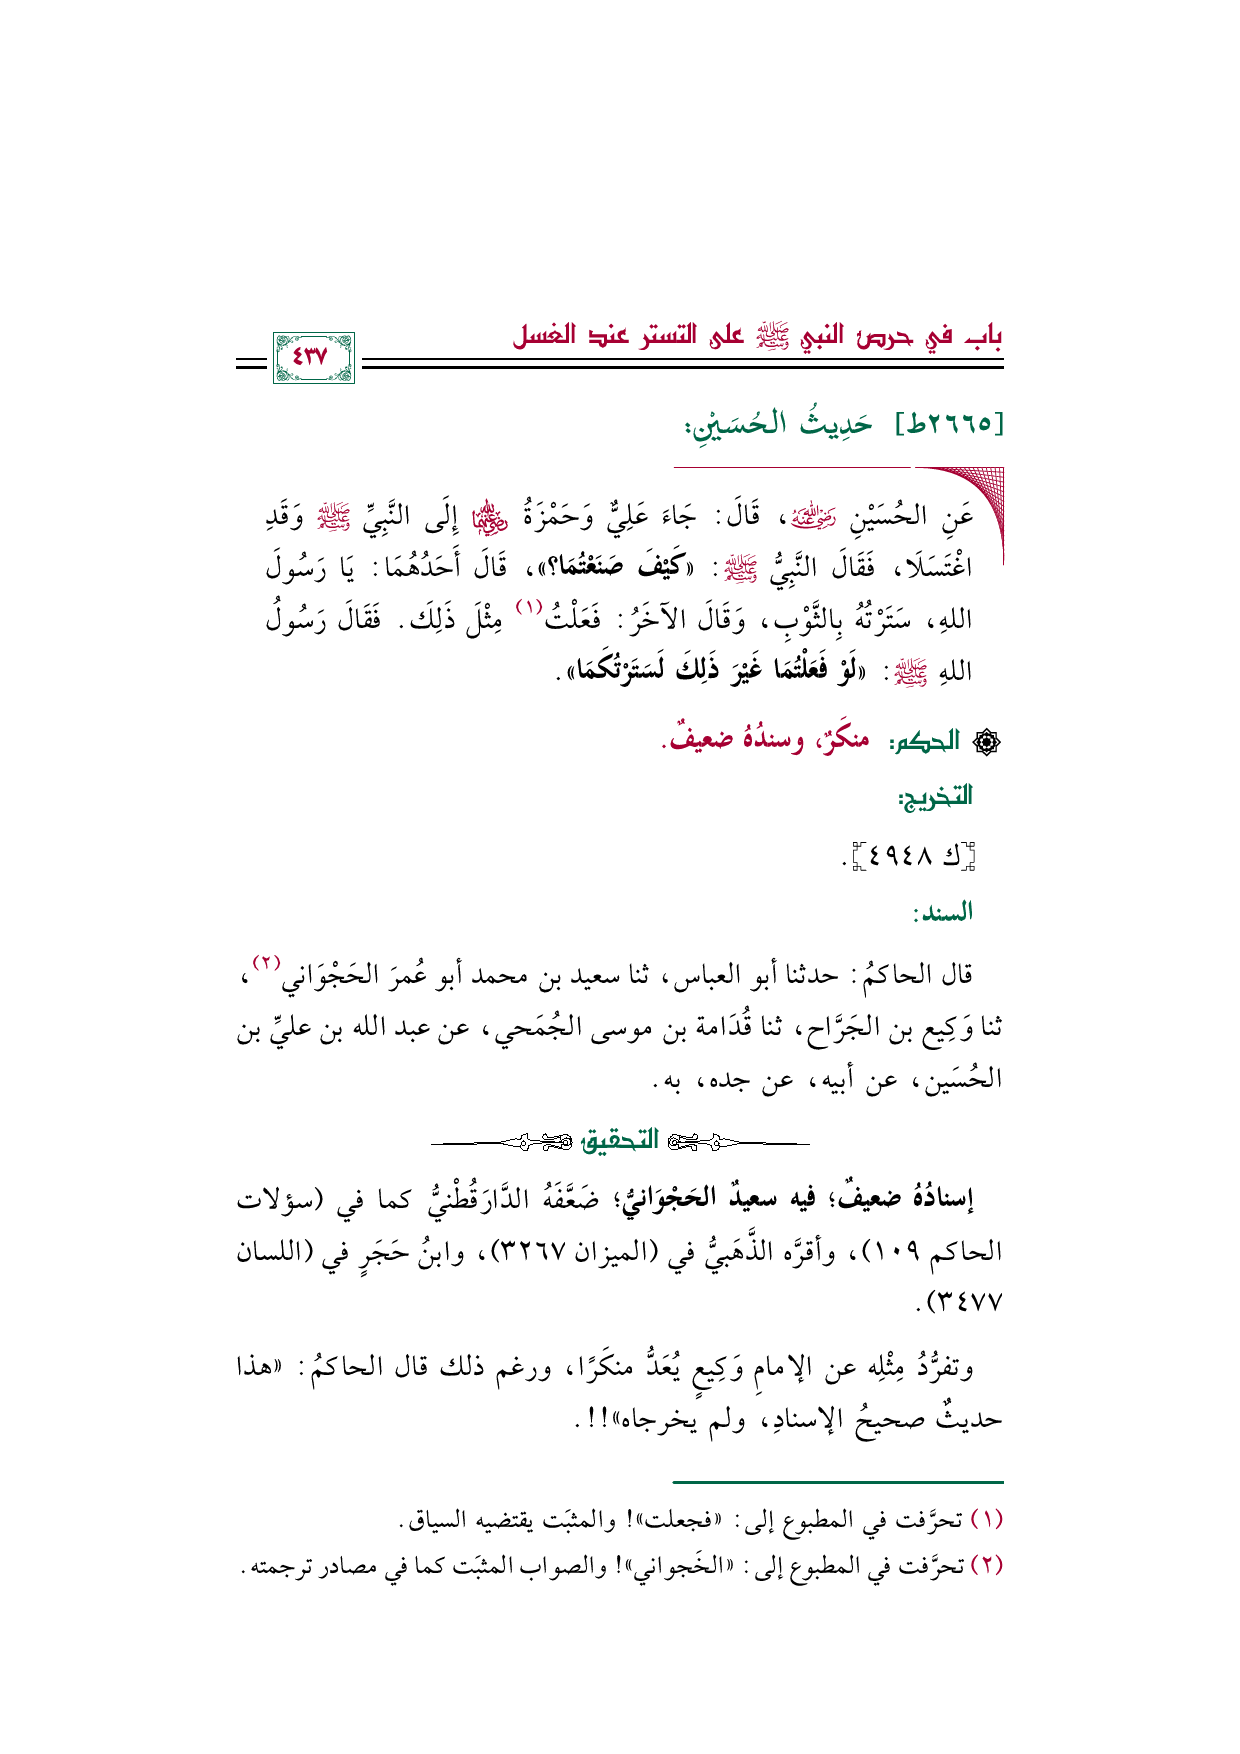 باب في حرص النبي ﷺ على التستر عند الغسل
٤٣٧
[٢٦٦٥ط] حَدِيثُ الحُسَيْنِ:
عَنِ الحُسَيْنِ رضي الله عنه، قَالَ: جَاءَ عَلِيٌّ وَحَمْزَةُ رضي الله عنهما إِلَى النَّبِيِّ ﷺ وَقَدِ
اغْتَسَلَا، فَقَالَ النَّبِيُّ ﷺ: «كَيْفَ صَنَعْتُمَا؟»، قَالَ أَحَدُهُمَا: يَا رَسُولَ
اللهِ، سَتَرْتُهُ بِالثَّوْبِ، وَقَالَ الآخَرُ: فَعَلْتُ(١) مِثْلَ ذَلِكَ. فَقَالَ رَسُولُ
اللهِ ﷺ: «لَوْ فَعَلْتُمَا غَيْرَ ذَلِكَ لَسَتَرْتُكُمَا».
الحكم: منكَرٌ، وسندُهُ ضعيفٌ.
التخريج:
[ك ٤٩٤٨].
السند:
قال الحاكمُ: حدثنا أبو العباس، ثنا سعيد بن محمد أبو عُمرَ الحَجْوَاني(٢)،
ثنا وَكِيع بن الجَرَّاح، ثنا قُدَامة بن موسى الجُمَحي، عن عبد الله بن عليِّ بن
الحُسَين، عن أبيه، عن جده، به.
التحقيق
إسنادُهُ ضعيفٌ؛ فيه سعيدٌ الحَجْوَانيُّ؛ ضَعَّفَهُ الدَّارَقُطْنيُّ كما في (سؤلات
الحاكم ١٠٩)، وأقرَّه الذَّهَبيُّ في (الميزان ٣٢٦٧)، وابنُ حَجَرٍ في (اللسان
٣٤٧٧).
وتفرُّدُ مِثْلِه عن الإمامِ وَكِيعٍ يُعَدُّ منكَرًا، ورغم ذلك قال الحاكمُ: «هذا
حديثٌ صحيحُ الإسنادِ، ولم يخرجاه»!!.
(١) تحرَّفت في المطبوع إلى: «فجعلت»! والمثبَت يقتضيه السياق.
(٢) تحرَّفت في المطبوع إلى: «الخَجواني»! والصواب المثبَت كما في مصادر ترجمته.